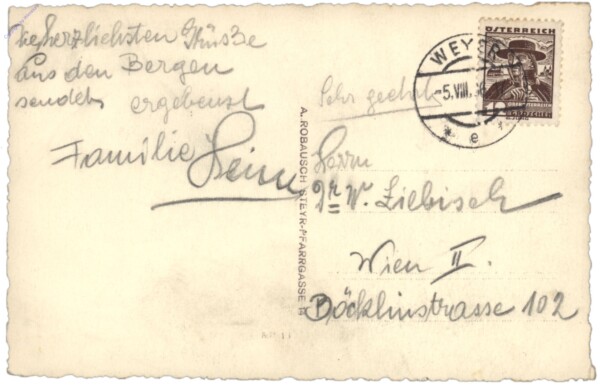 die herzlichsten Grüsse
aus den Bergen
sendet ergebenst
Familie Heim
A. ROBAUSCH STEYR-PFARRGASSE
WEYER
-5.VIII.
e
ÖSTERREICH
Sehr geehrten
Herrn
Dr W. Liebisch
Wien II.
Böcklinstrasse 102